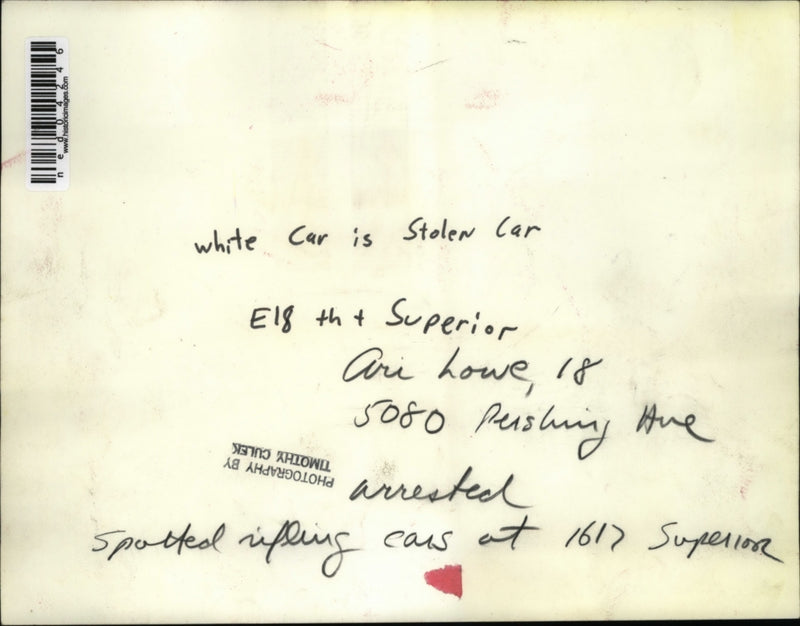 ned04246
www.historicimages.com
white Car is Stolen Car
E18 th + Superior
Ari Lowe, 18
5080 Pershing Ave
PHOTOGRAPHY BY
TIMOTHY CULEK
arrested
Spotted rifling cars at 1617 Superior